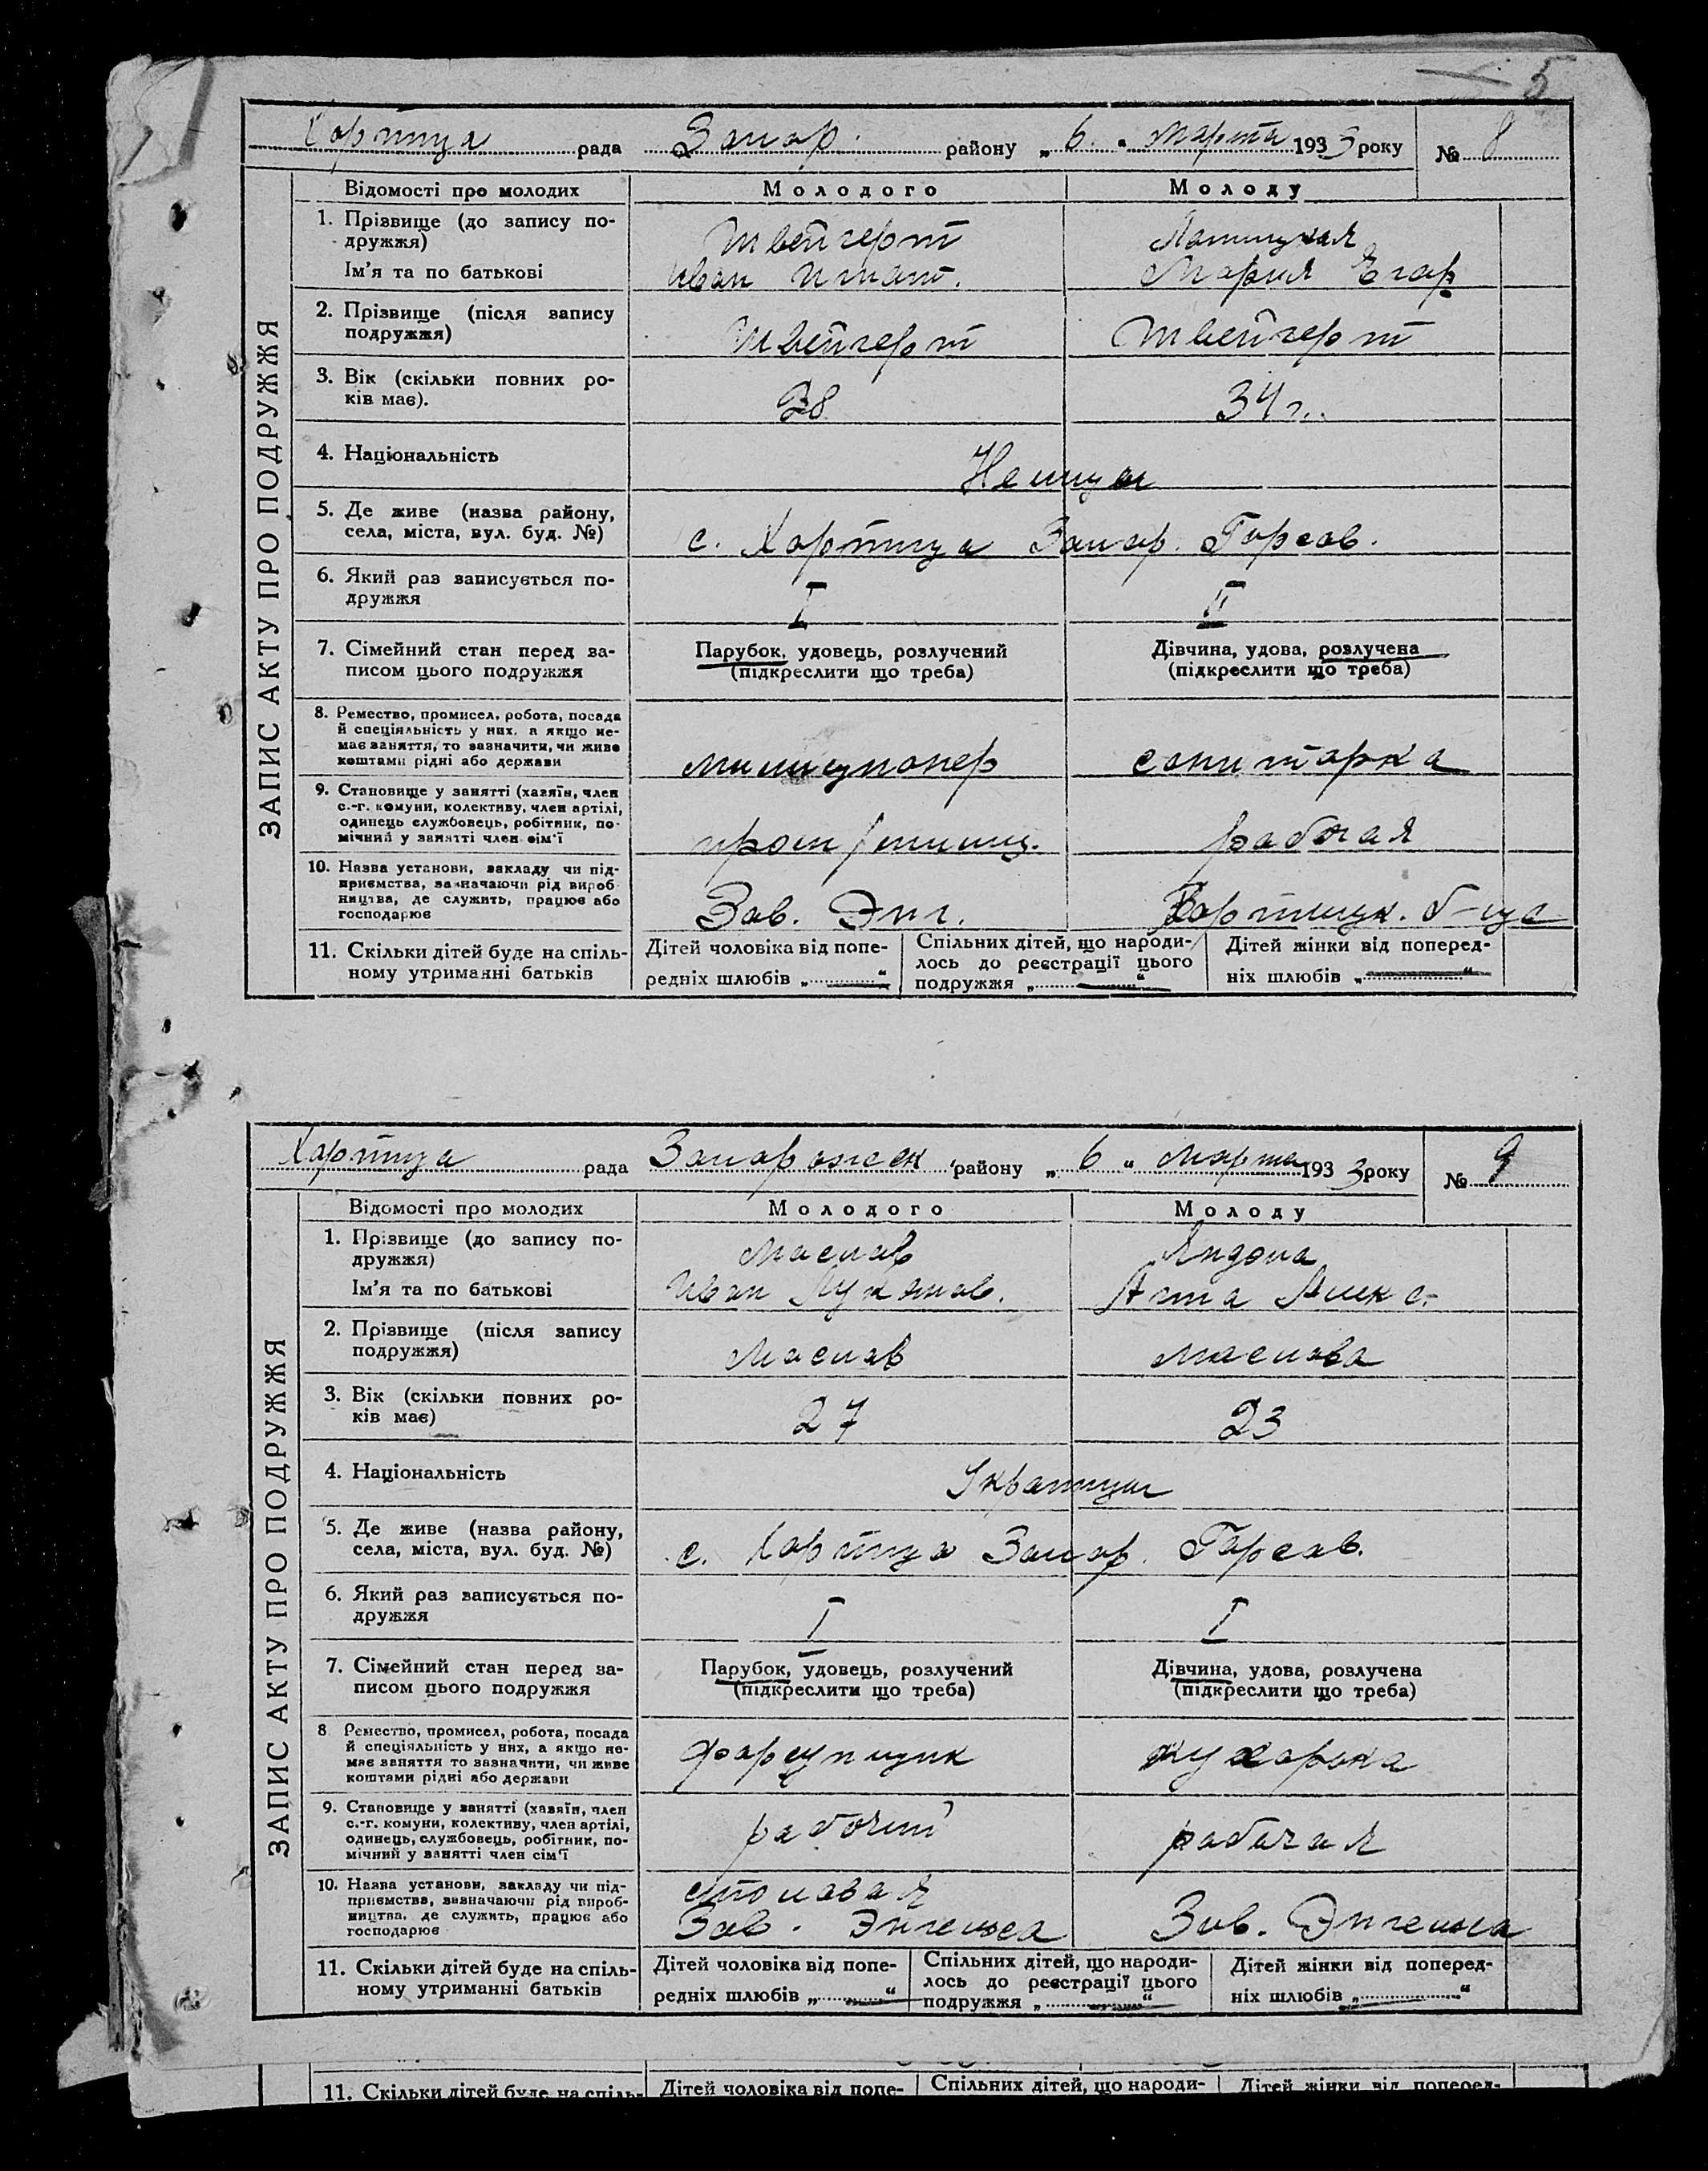 5
Хортица рада Запор. району „ 6. “ Марта 1933 року № 8
ЗАПИС АКТУ ПРО ПОДРУЖЖЯ
Відомості про молодих Молодого Молоду
1. Прізвище (до запису по-
дружжя) Швейгерт
Ім'я та по батькові Иван Мария Егор
2. Прізвище (після запису
подружжя) Швейгерт Швейгерт
3. Вік (скільки повних ро-
ків має). 28 34 г.
4. Національність Немцы
5. Де живе (назва району,
села, міста, вул. буд. №) с. Хортица Запор. Горсов.
6. Який раз записується по-
дружжя I II
7. Сімейний стан перед за-
писом цього подружжя
Парубок, удовець, розлучений
(підкреслити що треба)
Дівчина, удова, розлучена
(підкреслити що треба)
8. Ремество, промисел, робота, посада
й спеціяльність у них, а якщо не-
має заняття, то зазначити, чи живе
коштами рідні або держави
милиционер санитарка
9. Становище у занятті (хазяїн, член
с.-г. комуни, колективу, член артілі,
одинець службовець, робітник, по-
мічний у занятті член сім'ї
пром милиц. рабочая
10. Назва установи, закладу чи під-
приємства, зазначаючи рід вироб-
ництва, де служить, працює або
господарює
Зав. Энг. Хортицк. б-ца
11. Скільки дітей буде на спіль-
ному утриманні батьків
Дітей чоловіка від попе-
редніх шлюбів „ “
Спільних дітей, що народи-
лось до реєстрації цього
подружжя „ “
Дітей жінки від поперед-
ніх шлюбів „ “
Хортица рада Запорожск району „ 6 “ Марта 1933 року № 9
ЗАПИС АКТУ ПРО ПОДРУЖЖЯ
Відомості про молодих Молодого Молоду
1. Прізвище (до запису по-
дружжя) Маслов
Ім'я та по батькові Иван Лукянов. Анна Алекс.
2. Прізвище (після запису
подружжя) Маслов Маслова
3. Вік (скільки повних ро-
ків має) 27 23
4. Національність Украинцы
5. Де живе (назва району,
села, міста, вул. буд. №) с. Хортица Запор. Горсов.
6. Який раз записується по-
дружжя I I
7. Сімейний стан перед за-
писом цього подружжя
Парубок, удовець, розлучений
(підкреслити що треба)
Дівчина, удова, розлучена
(підкреслити що треба)
8 Ремество, промисел, робота, посада
й спеціяльність у них, а якщо не-
має заняття то зазначити, чи живе
коштами рідні або держави
форсунщик кухарка
9. Становище у занятті (хазяїн, член
с.-г. комуни, колективу, член артілі,
одинець, службовець, робітник, по-
мічний у занятті член сім'ї
рабочий рабочая
10. Назва установи, закладу чи під-
приємства, зазначаючи рід вироб-
ництва, де служить, працює або
господарює
столовая
Зав. Энгельса Зав. Энгельса
11. Скільки дітей буде на спіль-
ному утриманні батьків
Дітей чоловіка від попе-
редніх шлюбів „ “
Спільних дітей, що народи-
лось до реєстрації цього
подружжя „ “
Дітей жінки від поперед-
ніх шлюбів „ “
11. Скільки дітей буде на спіль- Дітей чоловіка від попе- Спільних дітей, що народи- Дітей жінки від поперед-